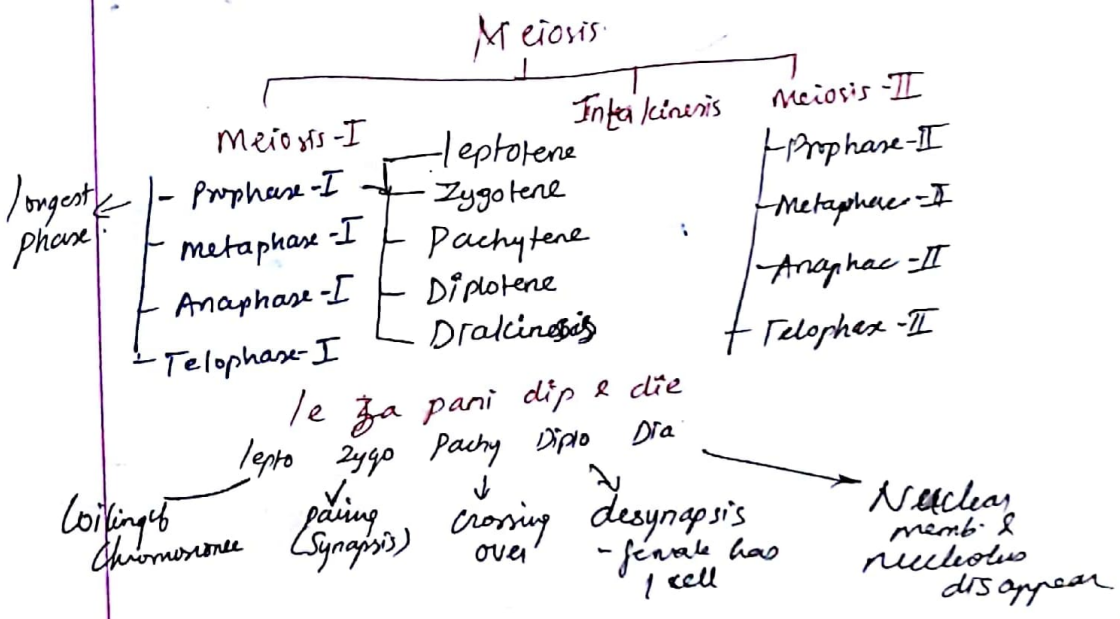 Meiosis
Meiosis-I
Intakinesis
Meiosis-II
longest phase.
Prophase-I
Metaphase-I
Anaphase-I
Telophase-I
leptotene
Zygotene
Pachytene
Diplotene
Diakinesis
Prophase-II
Metaphase-II
Anaphae-II
Telophase-II
le za pani dip & die
lepto Zygo Pachy Diplo Dia
Coiling of
Chromosome
pairing
(Synapsis)
Crossing
over
desynapsis
-female has
1 cell
Nuclear
memb. &
nucleolus
disappear